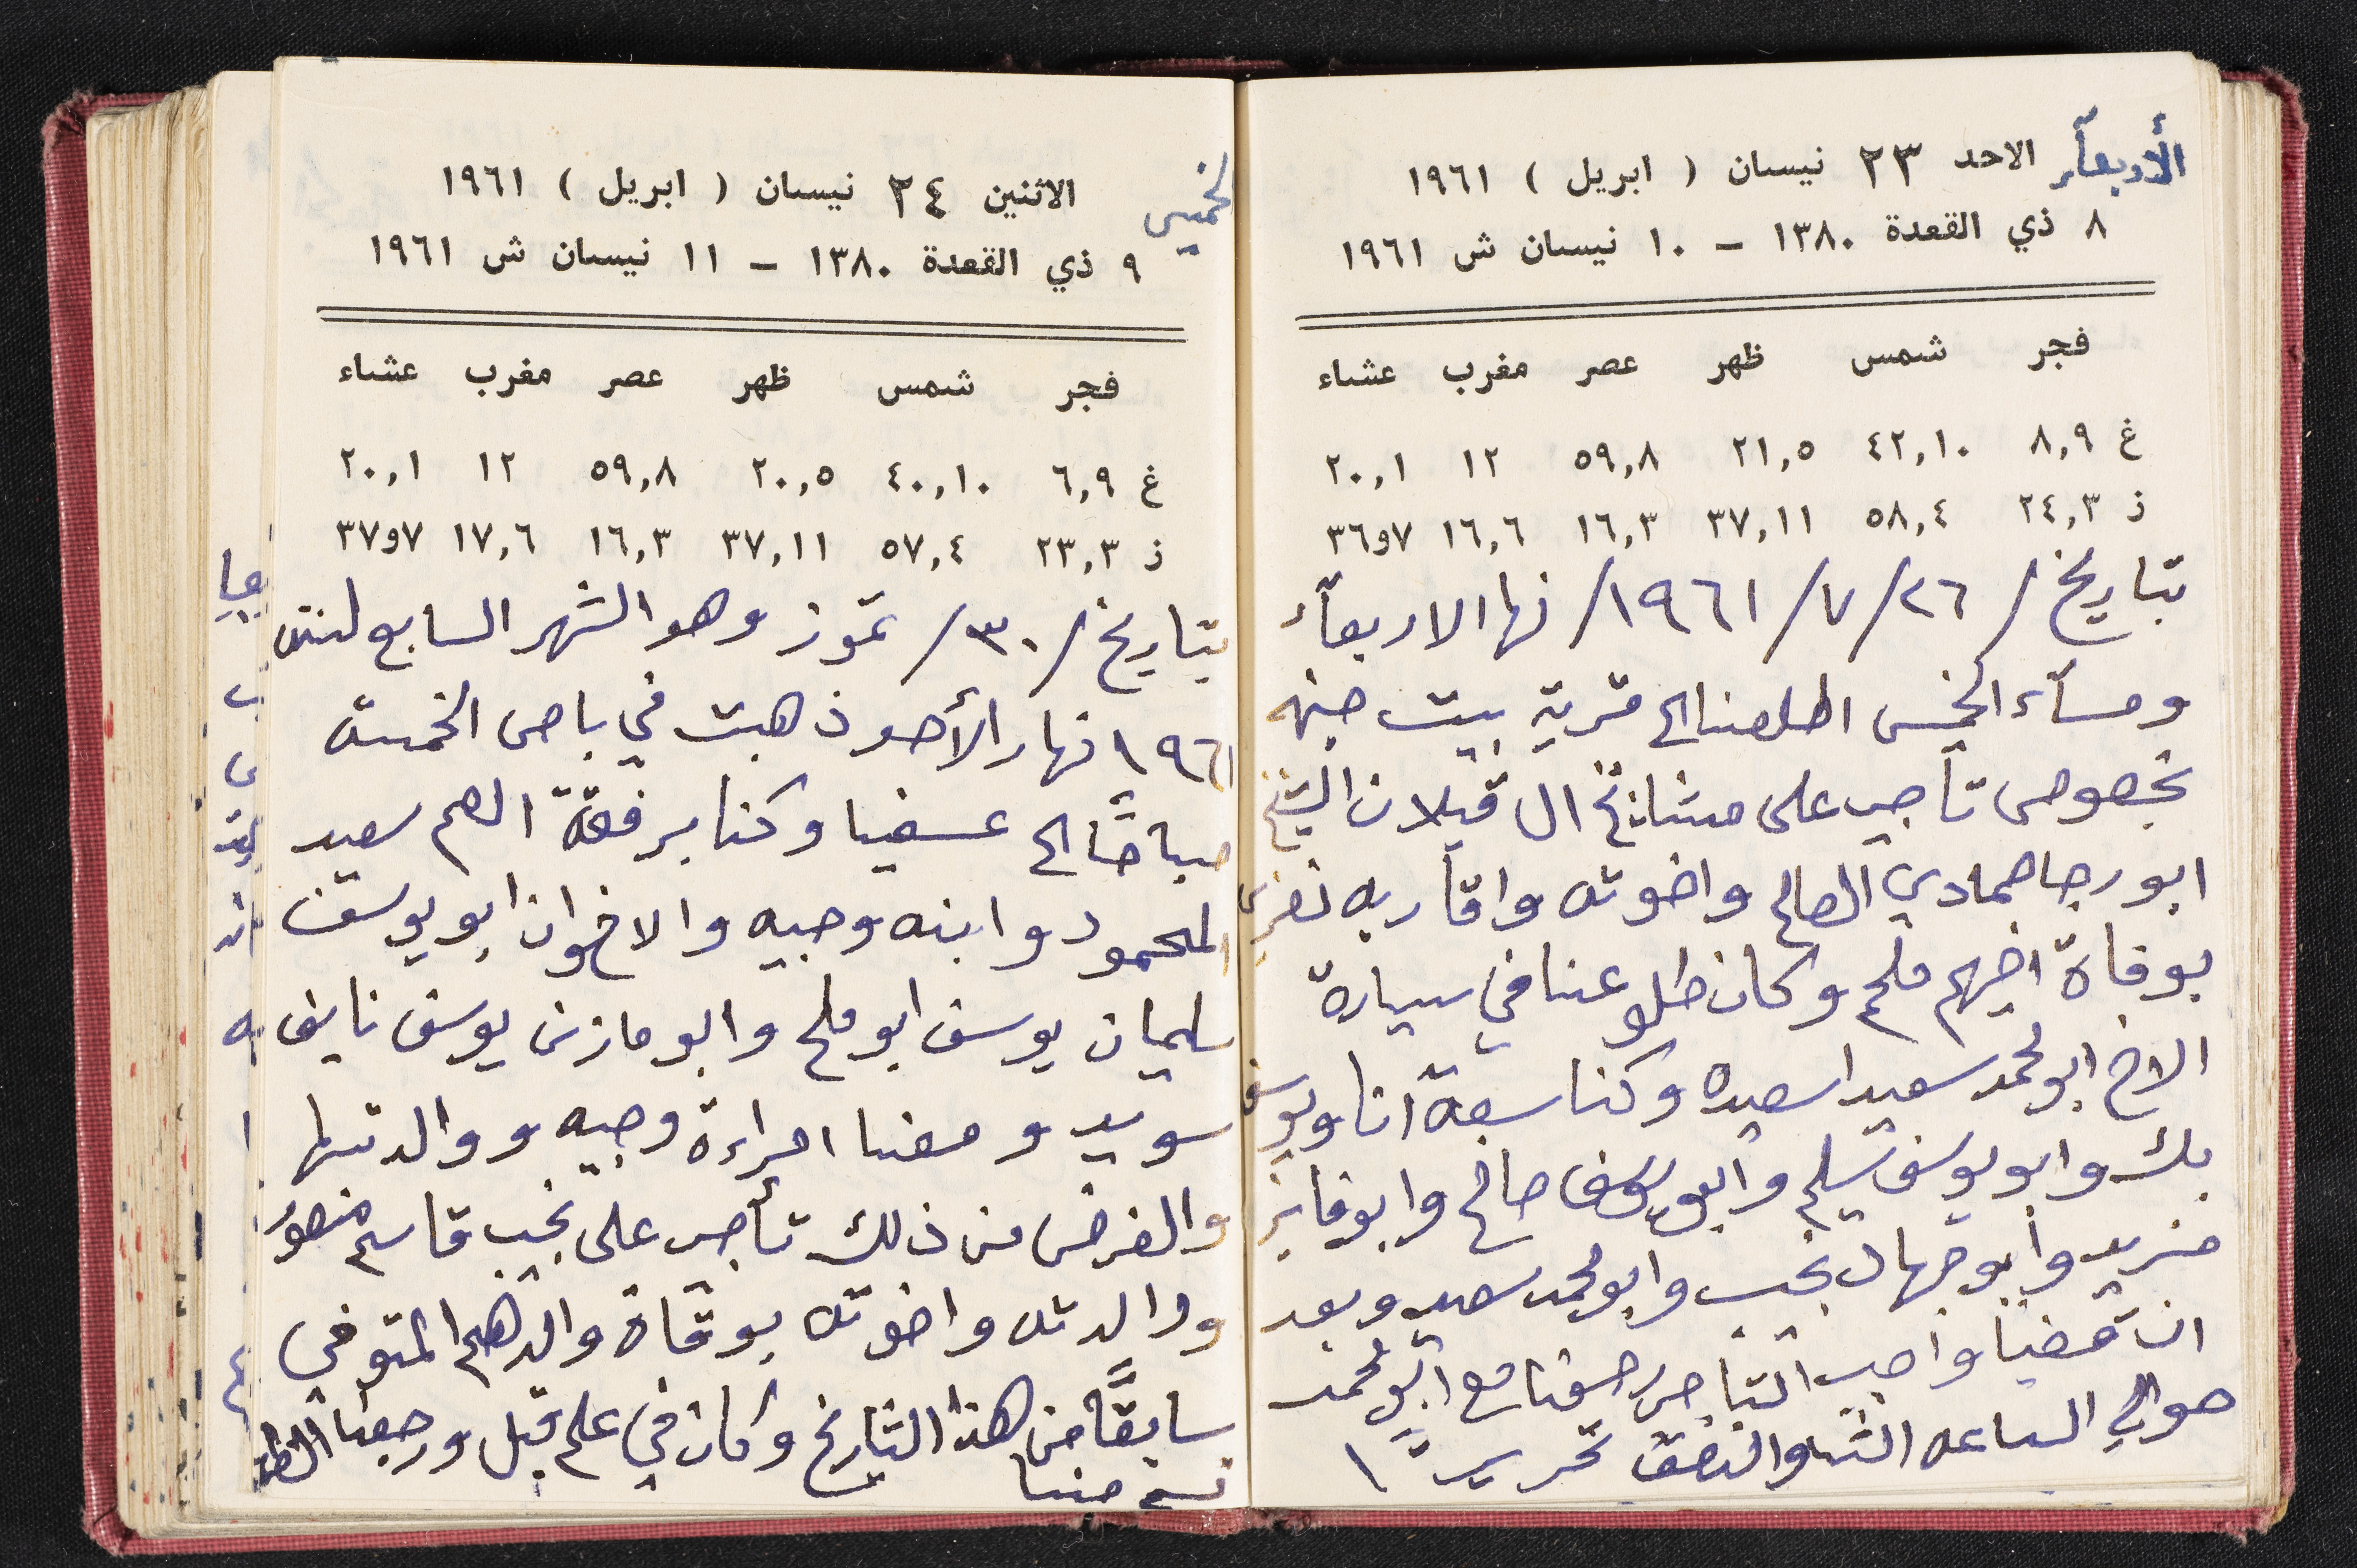 الأربعآء الاحد ٢٣ نيسان ( ابريل ) ١٩٦١
٨ ذي القعدة ١٣٨٠ – ١٠ نيسان ش ١٩٦١
فجر شمس ظهر عصر مغرب عشاء
غ ٨,٩ ٤٢,١٠ ٢١,٥ ٥٩,٨ ١٢ ٢٠,١
ذ ٢٤,٣ ٥٨,٤ ٣٧,١١ ١٦,٣ ١٦,٦ ٧و٣٦
بتاريخ /٢٦/٧/١٩٦١/ نها الاربعآء
ومسآء الخميس اطلعنا الى قرية بيت جنه
بخصوص تآجر على مشايخ ال قبلان الشيخ
ابو رجا حمادي الصالح واخوته واقاربه نعزيهم
بوفاة اخيهم ملحم وكان طلوعنا في سيارة
الاخ ابو محمد سعيد اسعيده وكنا سبعة انا ويوسف
بك وابو يوسف سليم وابو يوسف صالح وابو فايز
مزيد وابو جهاد نجيب وابو محمد سعيد وبعد
ان قضينا واجب التآجر رجعنا مع ابو محمد
حوالي الساعه الثه والنصف تحريرًا
الخميس الاثنين ٢٤ نيسان ( ابريل ) ١٩٦١
٩ ذي القعدة ١٣٨٠ – ١١ نيسان ش ١٩٦١
فجر شمس ظهر عصر مغرب عشاء
غ ٦,٩ ٤٠,١٠ ٢٠,٥ ٥٩,٨ ١٢ ٢٠,١
ذ ٢٣,٣ ٥٧,٤ ٣٧,١١ ١٦,٣ ١٧,٦ ٧و٣٧
بتاريخ /٣٠/ تموز وهو الشهر السابع لسنة
١٩٦١ نهار الأحد ذهبت في باص الخمسة
صباحًا الى عسفيا وكنا برفقة العم سعيد
المحمود وابنه وجيه والاخوان ابو يوسف
سليمان يوسف ابو ملح وابو مازن يوسف نايف
سويد ومعنا امراءة وجيه ووالدتها
والغرض من ذلك تأجر على نجيب قاسم منصور
ووالدته واخوته بوفاة والدهم المتوفي
سابقًا من هذا التاريخ وكان في علم قبل ورجعنا الظهر